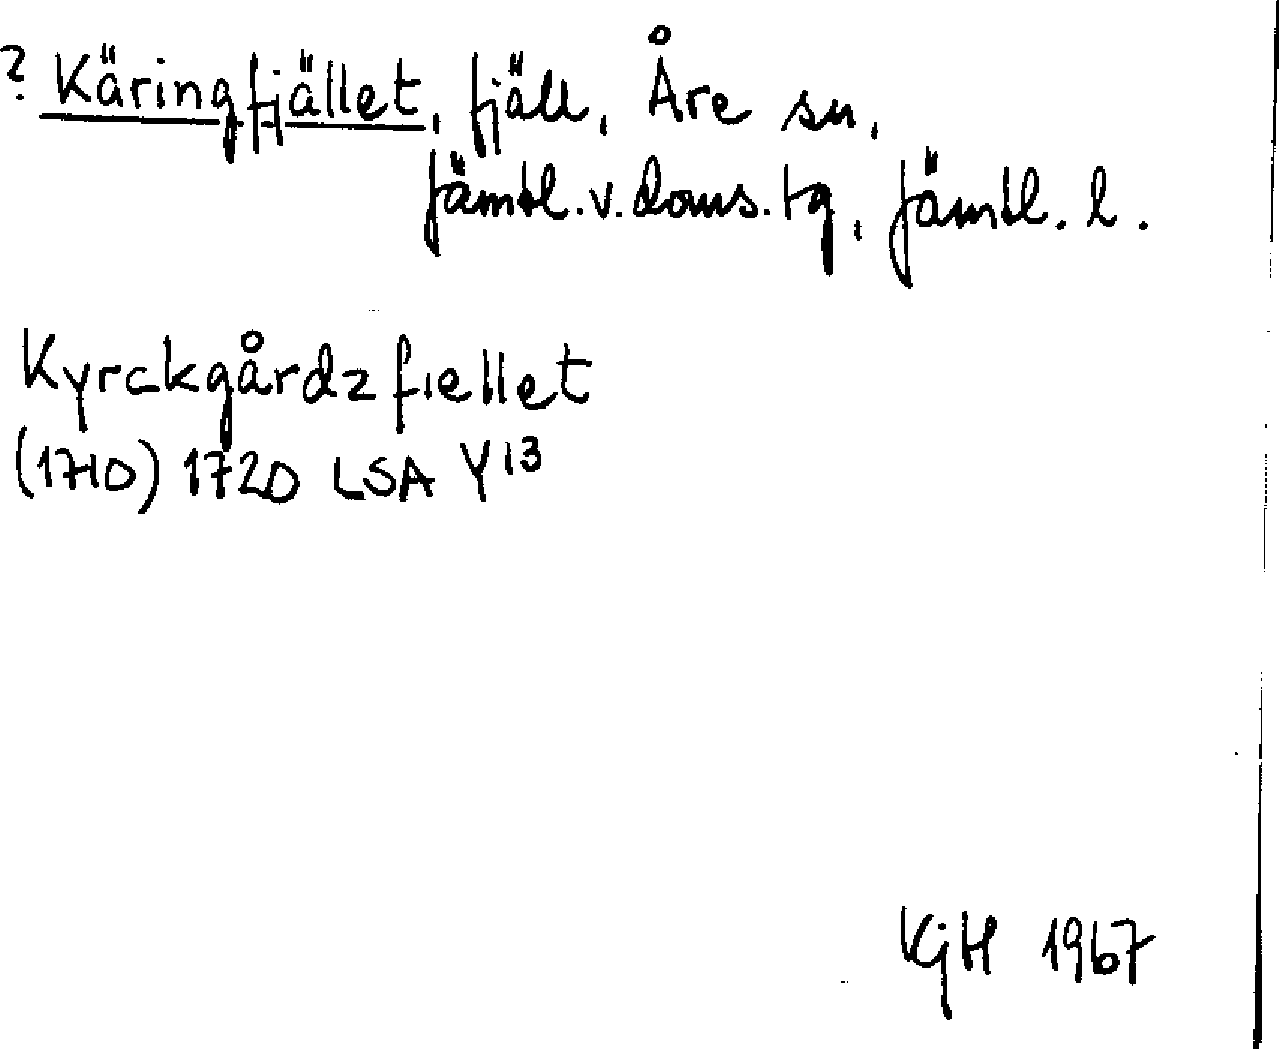 ? Käringfjället, fjäll, Åre sn,
Jämtl. v. doms. tg, Jämtl. l.
Kyrckgårdzfiellet
(1710) 1720 LSA Y13
KGH 1967